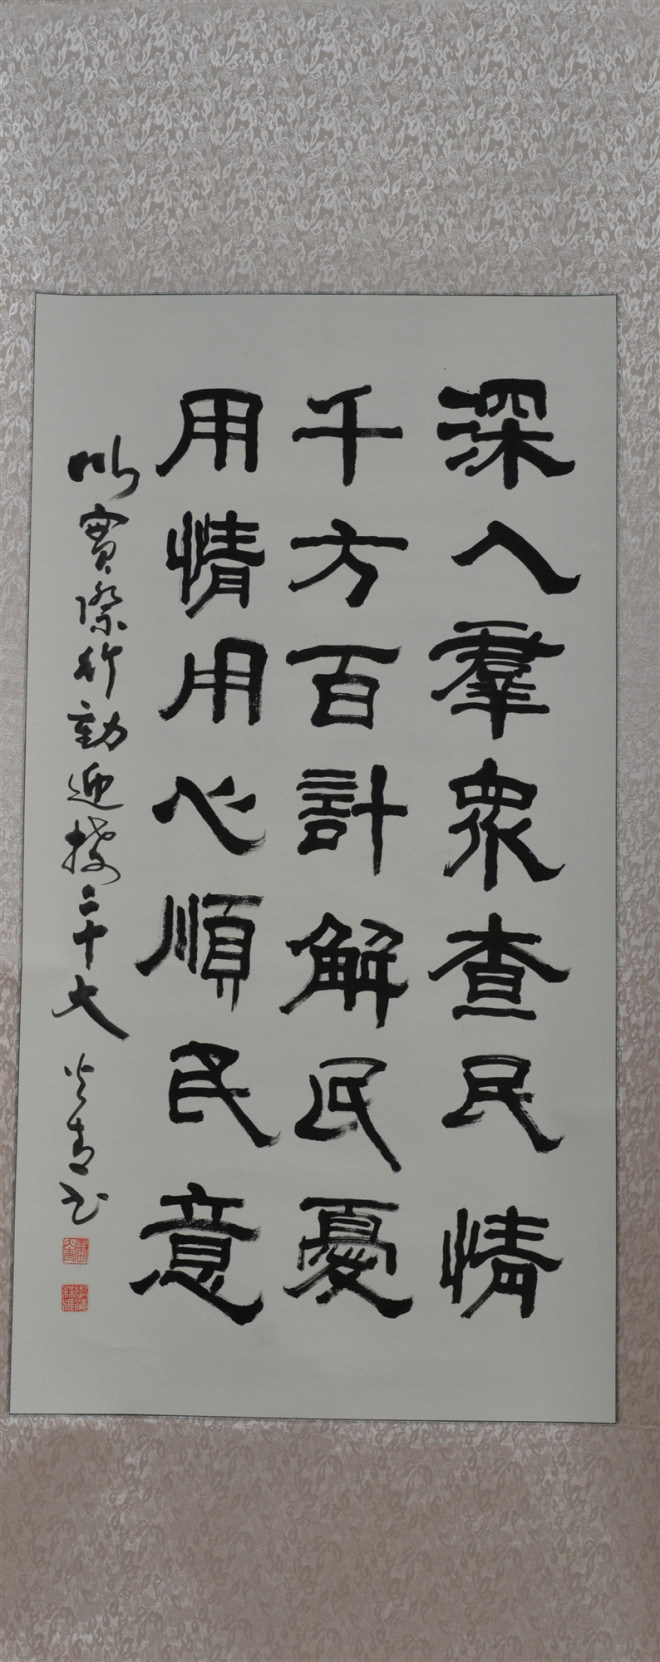 深入羣衆查民情
千方百計解民憂
用情用心順民意
以實際行動迎接二十大